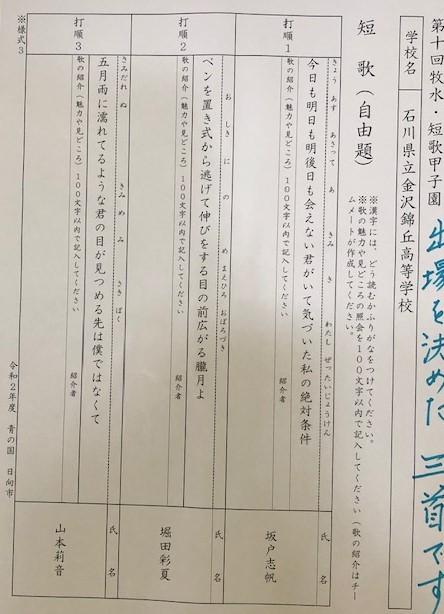 第十回牧水・短歌甲子園
出場を決めた三首です
学校名
石川県立金沢錦丘高等学校
短歌(自由題)
※漢字には、どう読むかふりがなをつけてください。
※歌の魅力や見どころの照会を100文字以内で記入してください(歌の紹介はチー
ムメートが作成してください。
打順1
きょう あす あさって あ きみ き わたし ぜったいじょうけん
今日も明日も明後日も会えない君がいて気づいた私の絶対条件
歌の紹介(魅力や見どころ)100文字以内で記入してください
紹介者
氏名
坂戸志帆
打順2
お しき に の め まえひろ おぼろづき
ペンを置き式から逃げて伸びをする目の前広がる朧月よ
歌の紹介(魅力や見どころ)100文字以内で記入してください
紹介者
氏名
堀田彩夏
打順3
さみだれ ぬ きみ め み さき ぼく
五月雨に濡れてるような君の目が見つめる先は僕ではなくて
歌の紹介(魅力や見どころ)100文字以内で記入してください
紹介者
氏名
山本莉音
※様式3
令和2年度 青の国 日向市